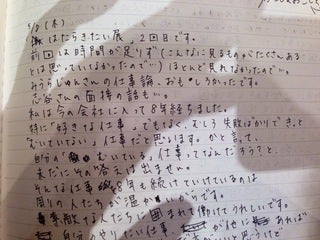 5/9(木)
はたらきたい展、2回目です。
前回は時間が足りず(こんなに見るものがたくさんある
とは思っていなかったので…)ほとんど見れなかったので…。
みうらじゅんさんの仕事論、おもしろかったです。
さんの面接の話も…。
私は今の会社に入って8年経ちました。
特に「好きな仕事」でもなく、むしろ失敗ばかりできっと
むいていない仕事だと思います。かと言って、
自分の「むいている」仕事ってなんだろうと、
未だにその答えは出ません。
そんな仕事を8年も続けていけているのは
周りの人たちが温かいからです。
素敵な人たちに囲まれて働けてうれしいです。
自分のやりたい仕事が他にあれば